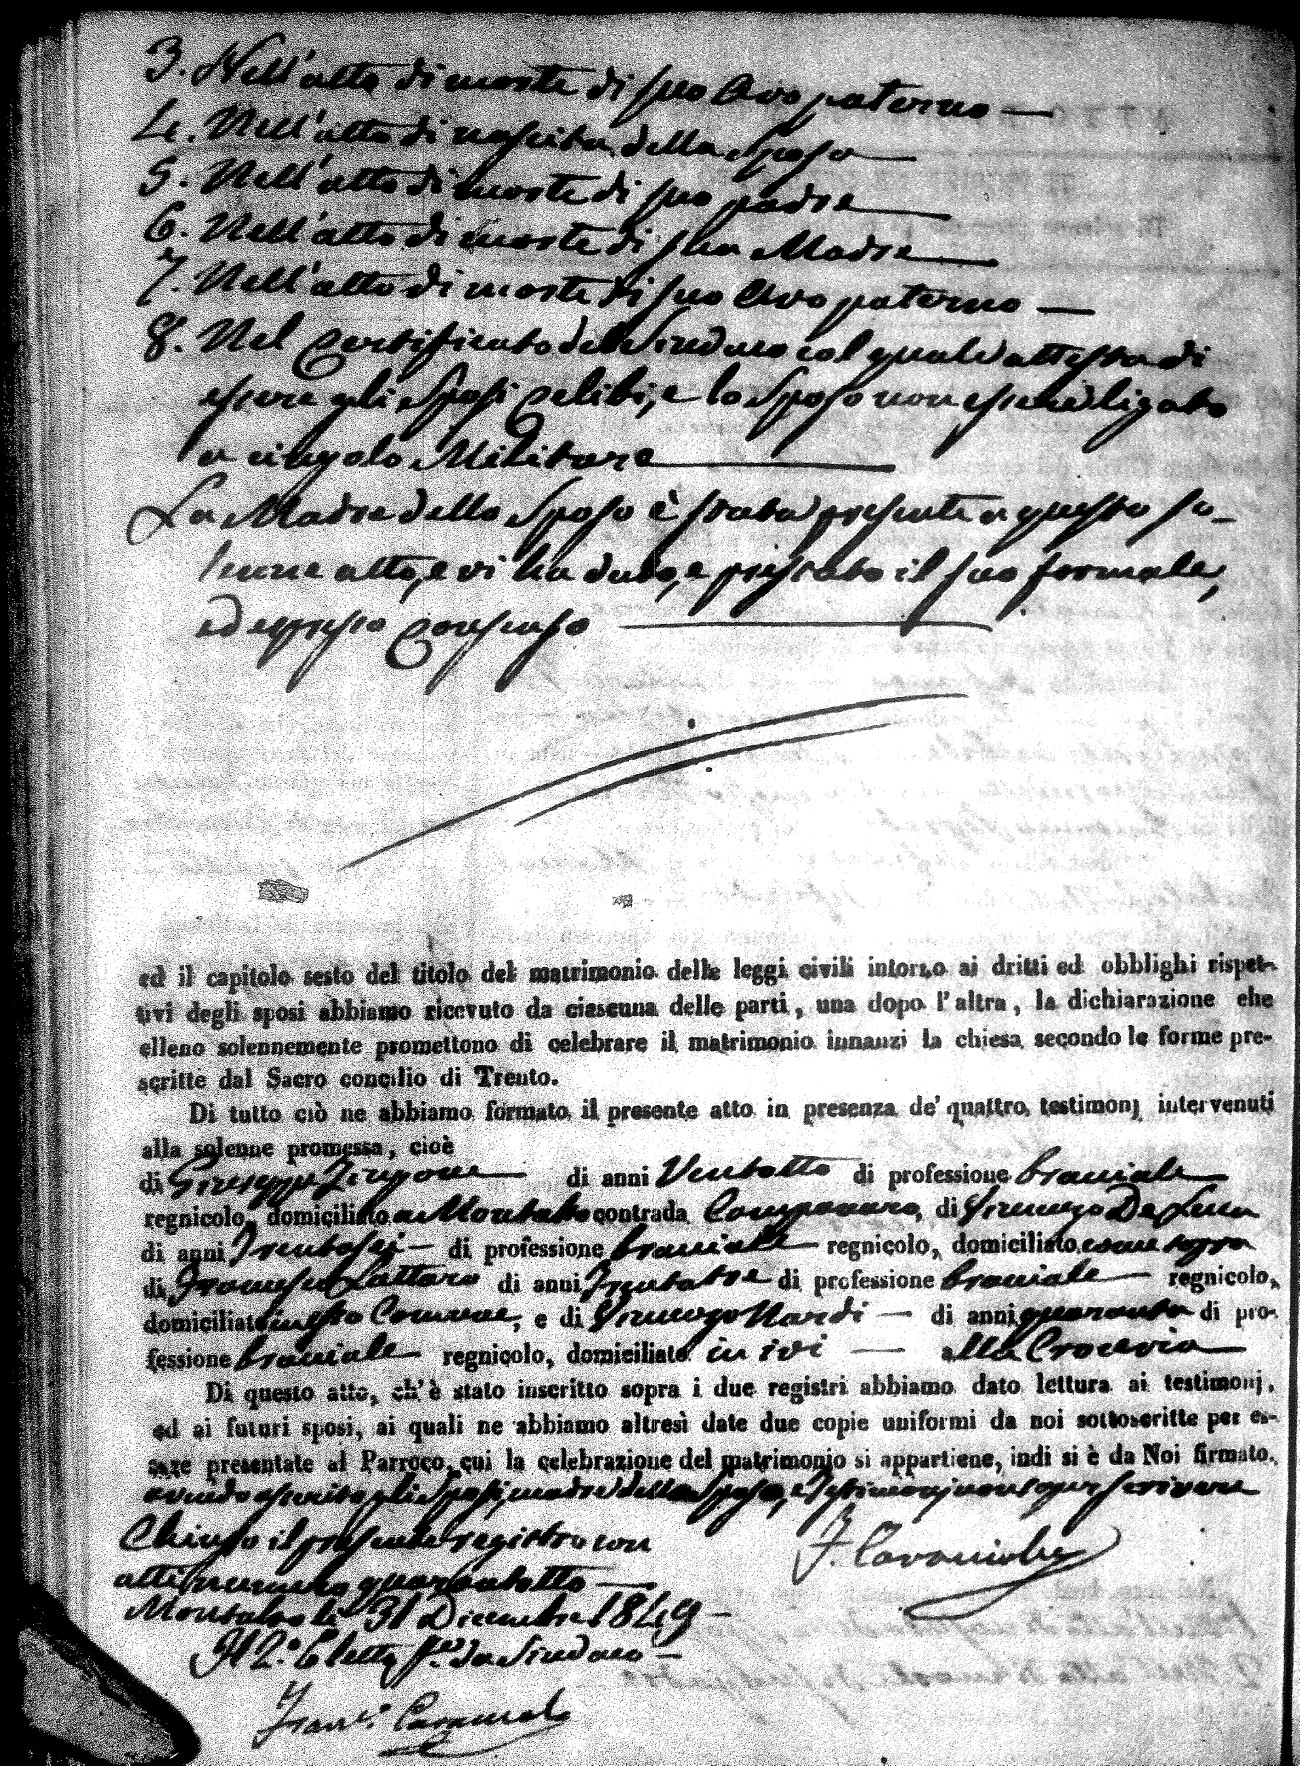 3. Nell'atto di morte di suo Avo paterno —
4. Nell'atto di nascita della Sposa —
5. Nell'atto di morte di suo padre —
6. Nell'atto di morte di sua Madre —
7. Nell'atto di morte di suo Avo paterno —
8. Nel Certificato del Sindaco col quale attesta di
essere gli Sposi Celibi, e lo Sposo non essere ligato
a cingolo Militare —
La Madre dello Sposo è stata presente a questo so-
lenne atto, e vi ha dato, e prestato il suo formale,
ed espresso Consenso —
ed il capitolo sesto del titolo del matrimonio delle leggi civili intorno ai dritti ed obblighi rispet-
tivi degli sposi abbiamo ricevuto da ciascuna delle parti, una dopo l'altra, la dichiarazione che
elleno solennemente promettono di celebrare il matrimonio innanzi la chiesa secondo le forme pre-
scritte dal Sacro concilio di Trento.
Di tutto ciò ne abbiamo formato il presente atto in presenza de' quattro testimonj intervenuti
alla solenne promessa, cioè
di Giuseppe di anni Ventotto di professione bracciale
regnicolo, domiciliato a Montalto contrada di Vincenzo De Luca
di anni Trentasei — di professione bracciale — regnicolo, domiciliato come sopra
di Francesco Lattaro di anni Trentatre di professione bracciale — regnicolo,
domiciliato in Comune, e di Vincenzo Nardi — di anni quaranta di pro-
fessione bracciale — regnicolo, domiciliato in ivi — alla Crocevia —
Di questo atto, ch'è stato inscritto sopra i due registri abbiamo dato lettura ai testimonj,
ed ai futuri sposi, ai quali ne abbiamo altresì date due copie uniformi da noi sottoscritte per es-
sere presentate al Parroco, cui la celebrazione del matrimonio si appartiene, indi si è da Noi firmato.
avendo asserito gli Sposi, madre dello Sposo, e Testimonj non saper scrivere
Chiuso il presente registro con
atti numero quarantotto —
Montalto li 31 Dicembre 1849 —
Il 2.° Eletto da Sindaco —